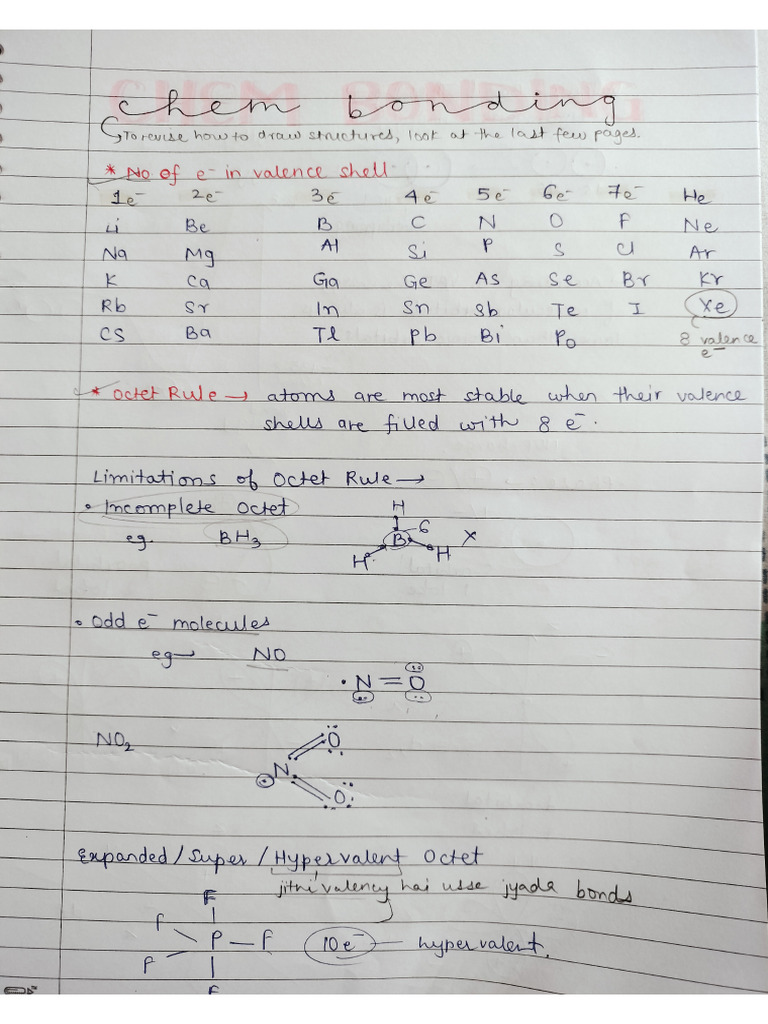 chem bonding
→ To revise how to draw structures, look at the last few pages.
* No of e⁻ in valence shell
1e⁻ 2e⁻ 3e⁻ 4e⁻ 5e⁻ 6e⁻ 7e⁻ He
Li Be B C N O F Ne
Na Mg Al Si P S Cl Ar
K Ca Ga Ge As Se Br Kr
Rb Sr In Sn Sb Te I Xe
Cs Ba Tl Pb Bi Po 8 valence
e⁻
* Octet Rule → atoms are most stable when their valence
shells are filled with 8 e⁻.
Limitations of Octet Rule →
• Incomplete Octet
H
eg. BH₃ B 6 x
H H
• Odd e⁻ molecules
eg → NO
• N = O
NO₂
O
N
O
Expanded / Super / Hypervalent Octet
jitni valency hai usse jyada bonds
F
F P – F 10e⁻ — hypervalent.
F
F